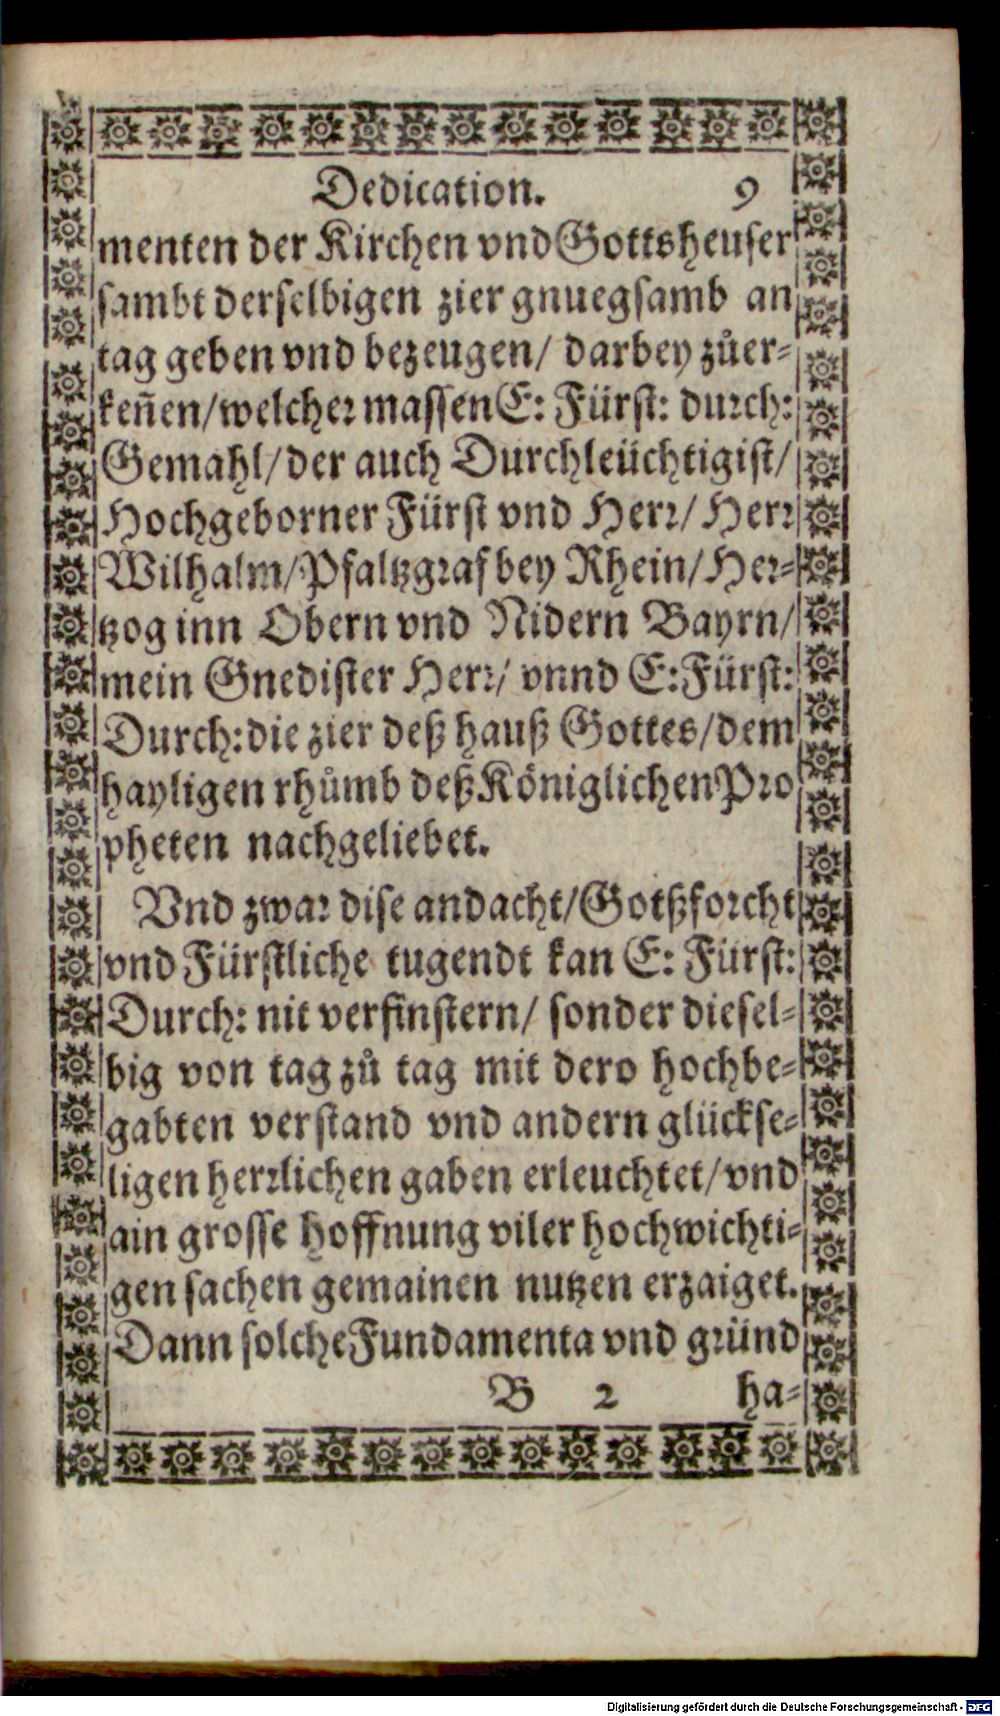 Dedication. 9
menten der Kirchen vnd Gottsheuser
sambt derselbigen zier gnuegsamb an
tag geben vnd bezeugen/ darbey zůer-
keñen/welcher massen E: Fürst: durch:
Gemahl/der auch Durchleüchtigist/
Hochgeborner Fürst vnd Herr/ Herr
Wilhalm/Pfaltzgraf bey Rhein/Her-
tzog inn Obern vnd Nidern Bayrn/
mein Gnedister Herr/ vnnd E:Fürst:
Durch:die zier deß hauß Gottes/dem
hayligen rhůmb deß Königlichen Pro
pheten nachgeliebet.
Vnd zwar dise andacht/Gotßforcht
vnd Fürstliche tugendt kan E: Fürst:
Durch: nit verfinstern/ sonder diesel-
big von tag zů tag mit dero hochbe-
gabten verstand vnd andern glückse-
ligen herrlichen gaben erleuchtet/vnd
ain grosse hoffnung viler hochwichti-
gen sachen gemainen nutzen erzaiget.
Dann solche Fundamenta vnd gründ
B 2 ha-
Digitalisierung gefördert durch die Deutsche Forschungsgemeinschaft - DFG